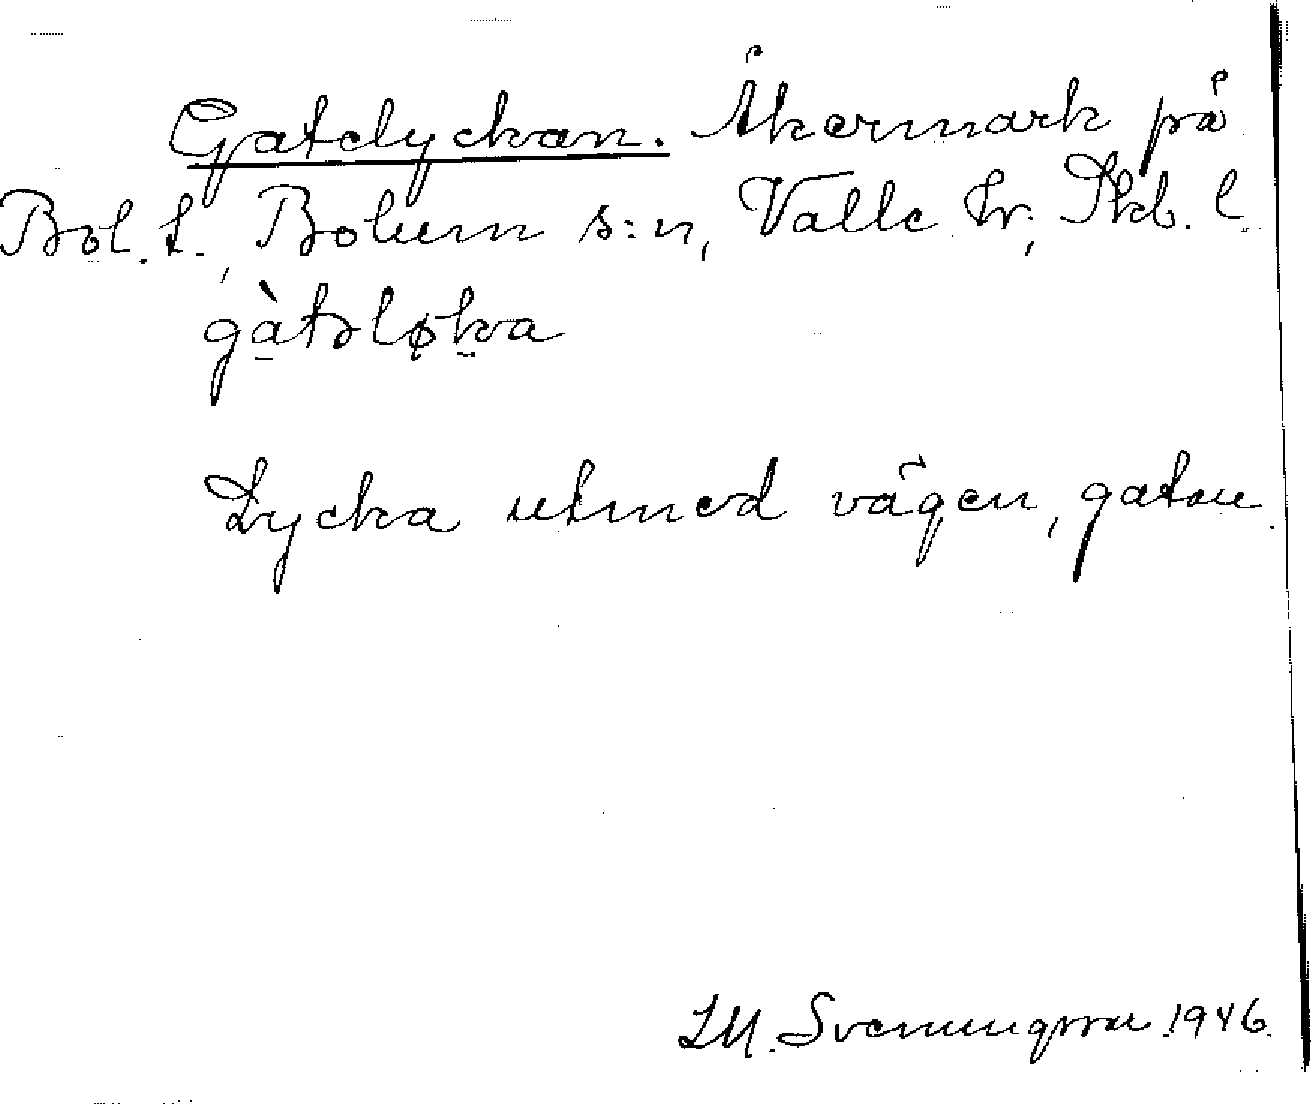 Gatelyckan. Åkermark på
Bol. t., Bolum s:n, Valle hr, Skb. l.
gàtəløka
Lycka utmed vägen, gatan.
I.M. Svenungsson 1946.